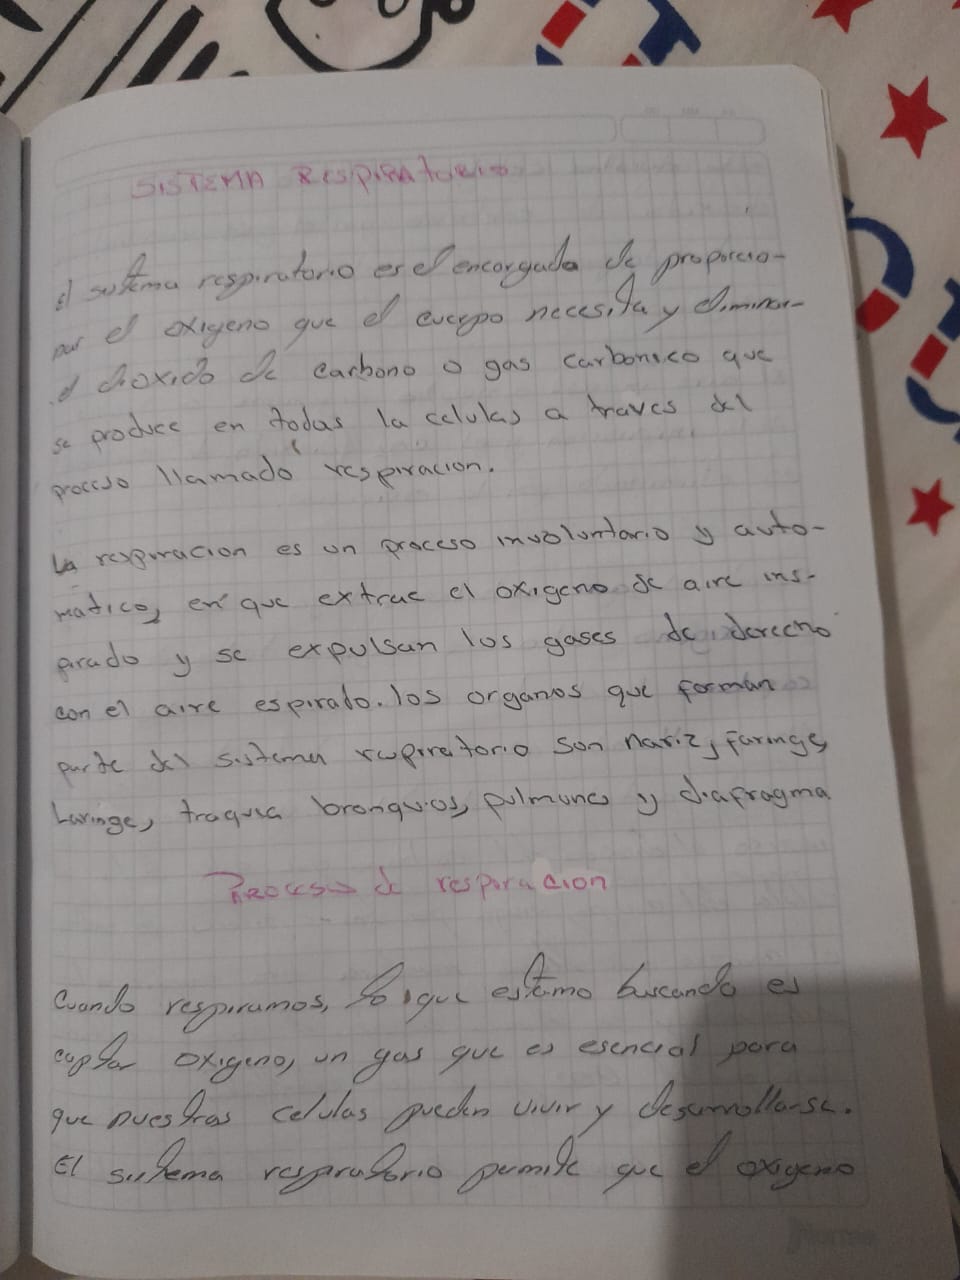 SISTEMA RESPIRAtORIO
El sistema respiratorio es el encargado de proporcio-
nar el oxigeno que el cuerpo necesita y eliminar
el dioxido de carbono o gas carbonico que
se produce en todas la celulas a traves del
proceso llamado respiracion.
La respiracion es un proceso involuntario y auto-
matico, en que extrae el oxigeno de aire ins-
pirado y se expulsan los gases de derecho
con el aire espirado. los organos que forman
parte del sistema respiratorio son nariz, faringe,
Laringe, traquea bronquios, pulmones y diafragma
PROCESO de respiracion
Cuando respiramos, lo que estamo buscando es
captar oxigeno, un gas que es esencial para
que nuestras celulas pueden vivir y desarrollarse.
El sistema respiratorio permite que el oxigeno